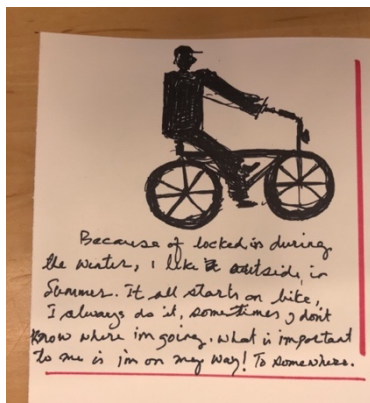 Because of locked in during
the winter, I like outside in
Summer. It all starts on bike,
I always do it, sometimes I dont
Know where im going. what is important
to me is im on my way! To somewhere.